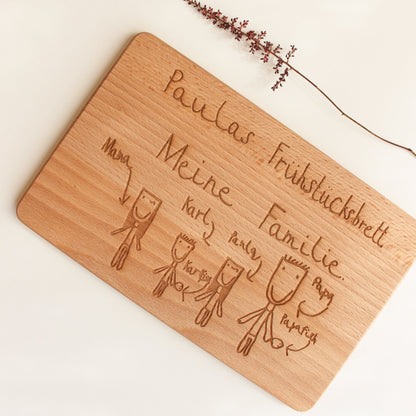 Paulas Frühstücksbrett
Meine Familie.
Mama
Karl
Paula
Papa
Karlfisch
Papafish